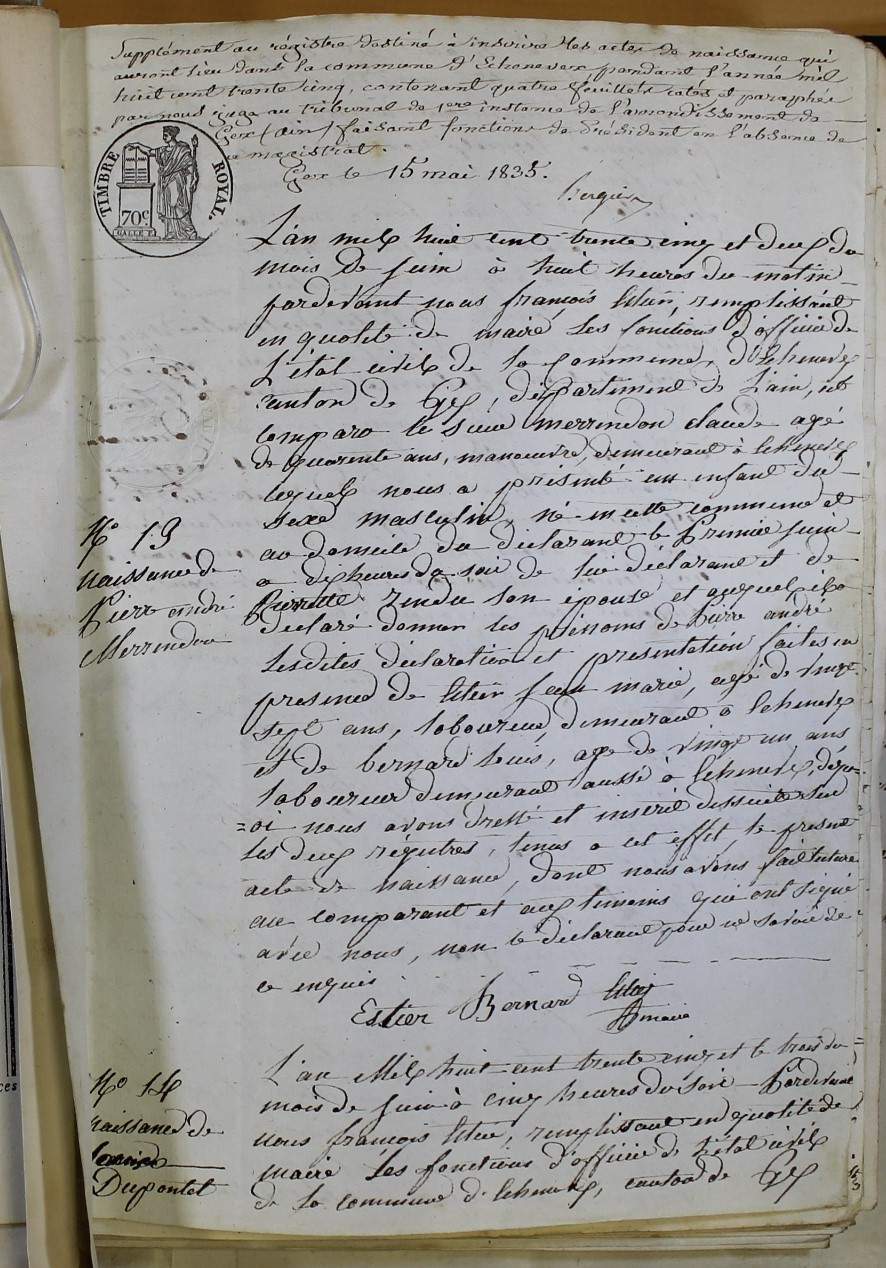 Supplément au régistre destiné à inscrire les actes de naissance qui
auront lieu dans la commune d'Echenevex pendant l'année mil
huit cent trente cinq, contenant quatre feuillets cotés et paraphés
par nous juge au tribunal de 1ere instance de l'arrondissement de
Gex (ain) faisant fonctions de Président en l'absence de
ce magistrat.
Gex le 15 mai 1835.
TIMBRE ROYAL.
70c.
L'an mil huit cent trente cinq et deux du
mois de juin à huit heures du matin
pardevant nous françois Estier, remplissant
en qualité de maire, les fonctions d'officier de
L'état civil de la commune d'Echenevex
canton de Gex, département de L'ain, est
comparu le sieur merrendon claude agé
de quarente ans, manoeuvre, demeurant à Echenevex
lequel nous a présenté un enfant du
sexe masculin, né en cette commune et
N° 13
au domicile du déclarant le Premier juin
naissance de
a dix heures du soir de lui déclarant et de
Pierre andré
Pierrette rendu son épouse et auquel il a
Merrendon
déclaré donner les prénoms de Pierre andré
Lesdites déclaration et présentation faites en
presence de Estier jean marie, agé de vingt
sept ans, laboureur, demeurant a Echenevex
et de bernard Louis, age de vingt un ans
laboureur demeurant aussi à Echenevex, de quoi
nous avons dressé et inscrit dessuite sur
les deux régistres, tenus a cet effet, le present
acte de naissance, dont nous avons fait lecture
au comparant et aux temoins qui ont signé
avec nous, non le déclarant pour ne savoir de
ce enquis
Estier Bernard Estier
maire
N° 14
L'an Mil huit cent trente cinq et le trois du
mois de juin à cinq heures du soir Pardevant
naissance de
nous françois Estier, remplissant en qualité de
Dupontet
maire Les fonctions d'officier de L'état civil
de la commune d'Echenevex, canton de Gex